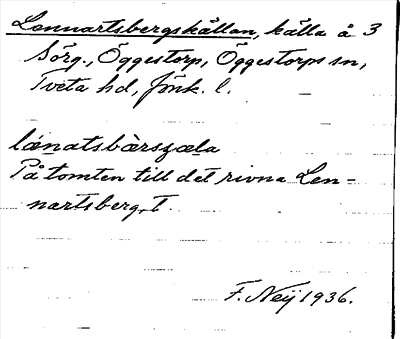 Lennartsbergskällan, källa å 3
Sörg., Öggestorp, Öggestorps sn,
Tveta hd, Jönk. l.
lænatsbàrsʒæla
På tomten till det rivna Len-
nartsberg, t.
F. Neij 1936.